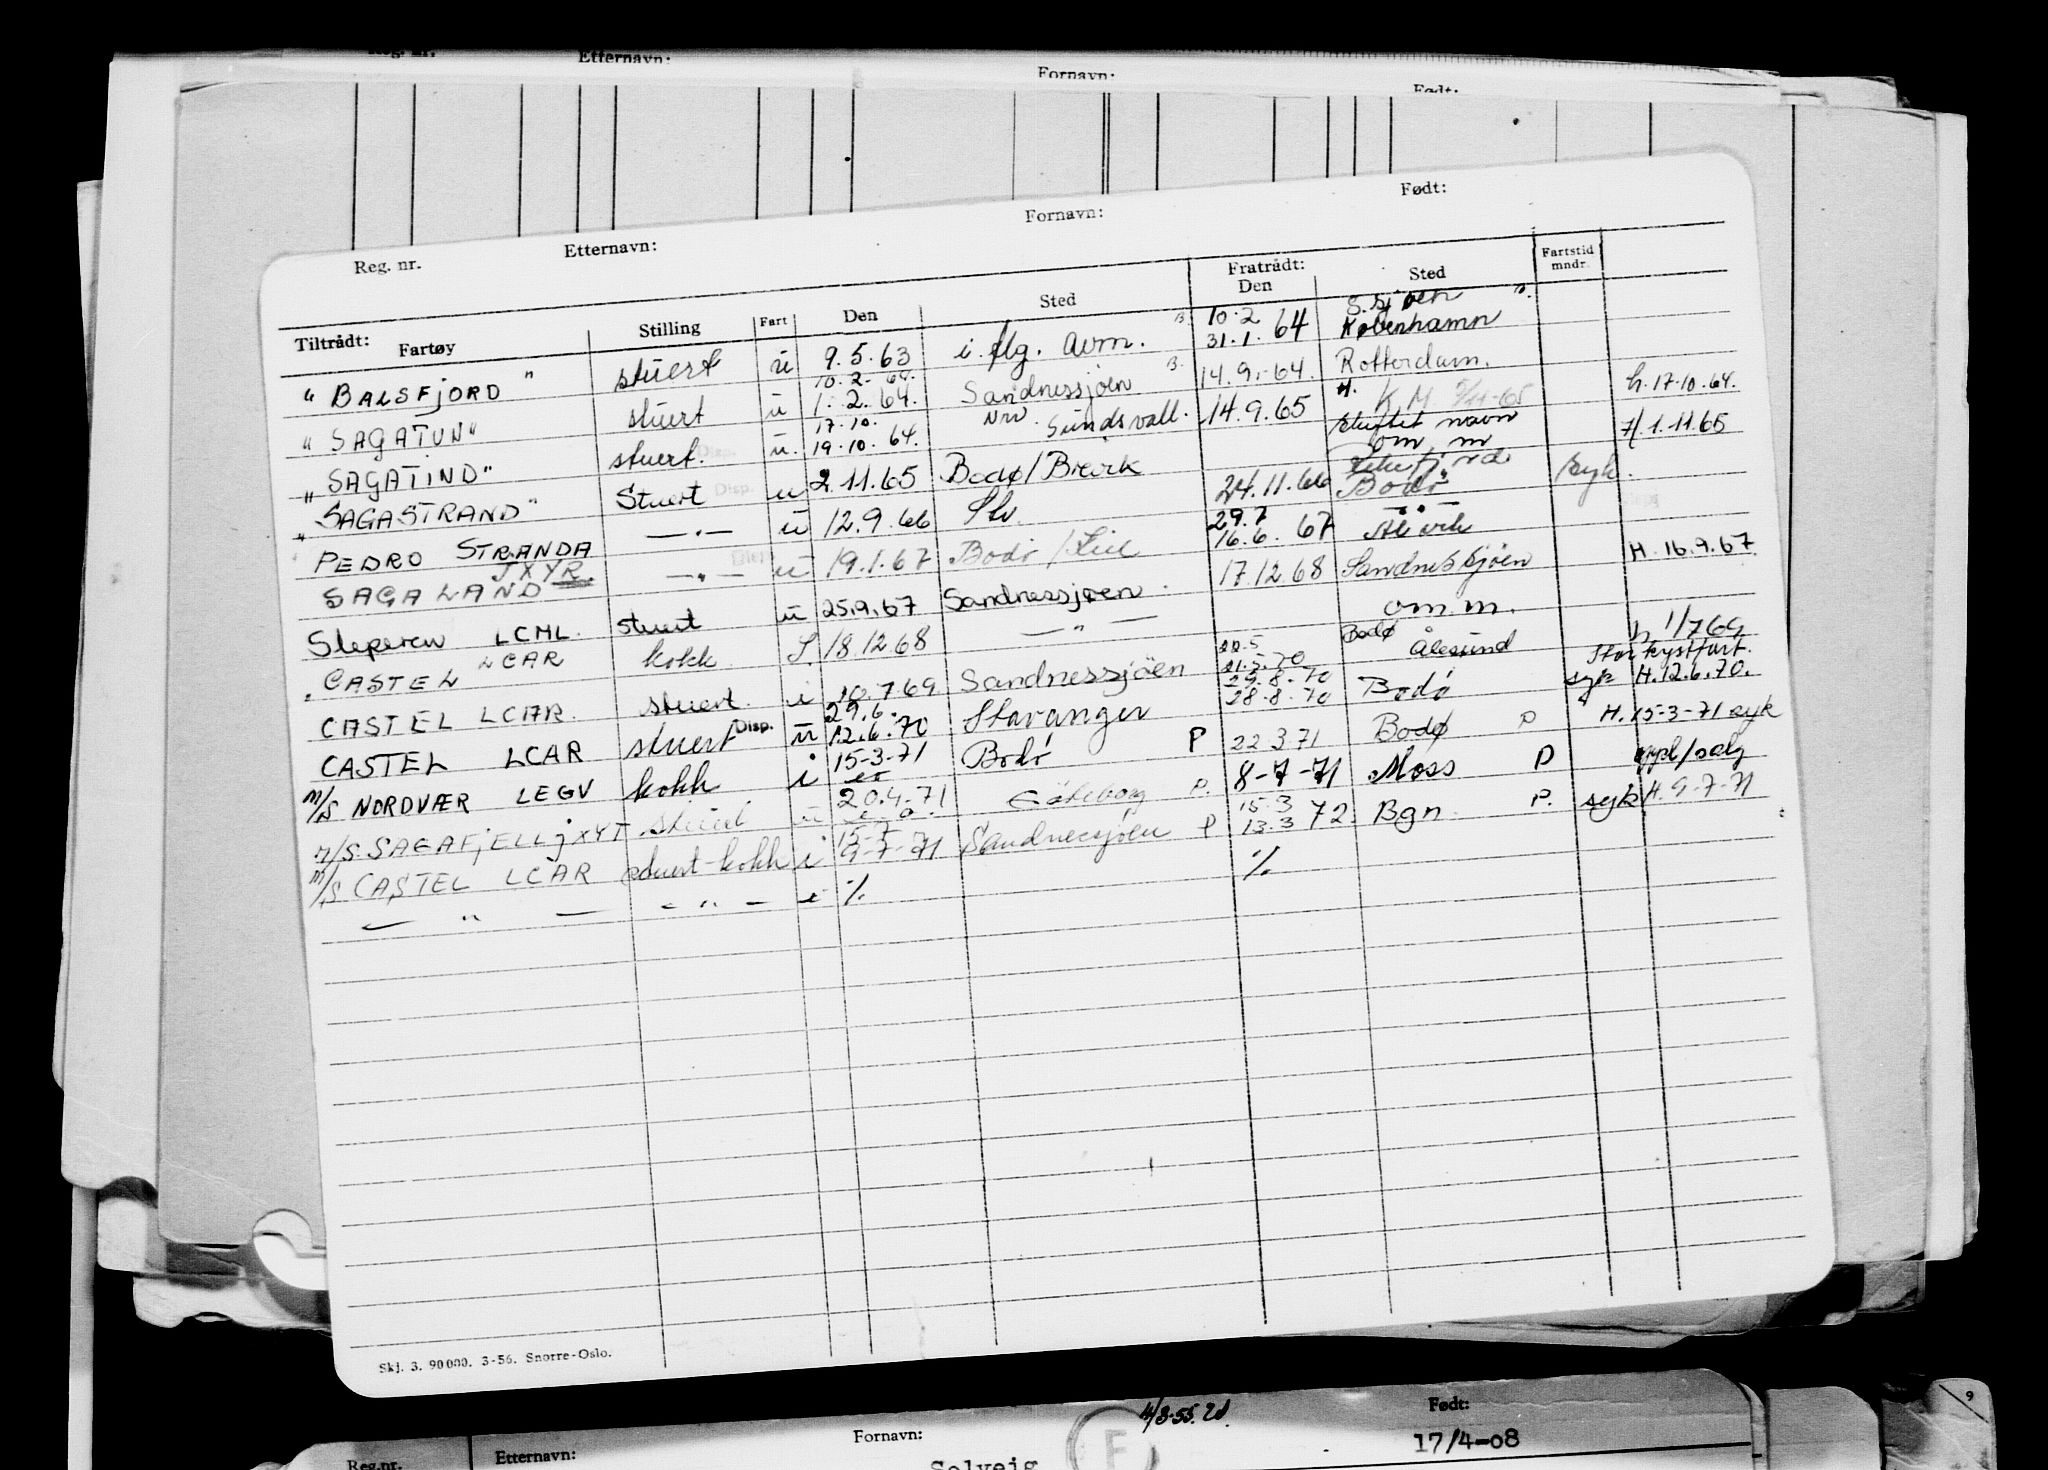 Reg. nr. Etternavn: Fornavn: Født:
Reg. nr. Etternavn: Fornavn: Født:
Tiltrådt: Fratrådt:
Fartøy Stilling Fart Den Sted Den Sted Fartstid mndr.
10.2 S.sjøen
" BALSFJORD " stuert u 9.5.63 i flg. avm. B. 31.1.64 København
10.2.64.
" SAGATUN" stuert u 1.2.64. Sandnessjøen B. 14.9.64. Rotterdam.
17.10. h. 17.10.64.
" SAGATIND" stuert. u. 19.10.64. Sundsvall. 14.9.65 K M
skiftet navn 1.11.65
om m
" SAGASTRAND" Stuert Disp. u 2.11.65 Bodø/Brevik
PEDRO STRANDA — " — u 12.9.66 Slv. 24.11.66 Bodø syk.
JXYR. 29.7
SAGALAND — " — Disp. u 19.1.67 Bodø / 16.6. 67
Sleperen LCML. stuert u 25.9.67 Sandnessjøen. 17.12.68 Sandnessjøen H. 16.9.67
" CASTEL LCAR kokk S. 18.12.68 — " — om m.
22.5 Bodø h. 1/7 69
CASTEL LCAR. stuert. i 10.7.69 Sandnessjöen 21.5.70 Ålesund Stor kystfart.
29.6. 29.8.70
CASTEL LCAR stuert Disp. u 12.6.70 Stavanger 28.8.70 Bodø syk H. 12.6.70.
M/S NORDVÆR LEGV kokk i 15-3-71 Bodø P 22 3 71 Bodø P H. 15-3-71 syk
M/S SAGAFJELL JXYT stuert u 20.4-71 Göteborg P. 8-7-71 Moss P
15-7 15-3
M/S CASTEL LCAR stuert-kokk i 9-7-71 Sandnessjøen P 13.3 72. Bgn. P. syk H. 9-7-71
— " — — " — i % %
Skj. 3. 90000. 3-56. Snorre-Oslo.
Reg.nr. Etternavn: Fornavn: Født:
Solveig F 17/4-08
9